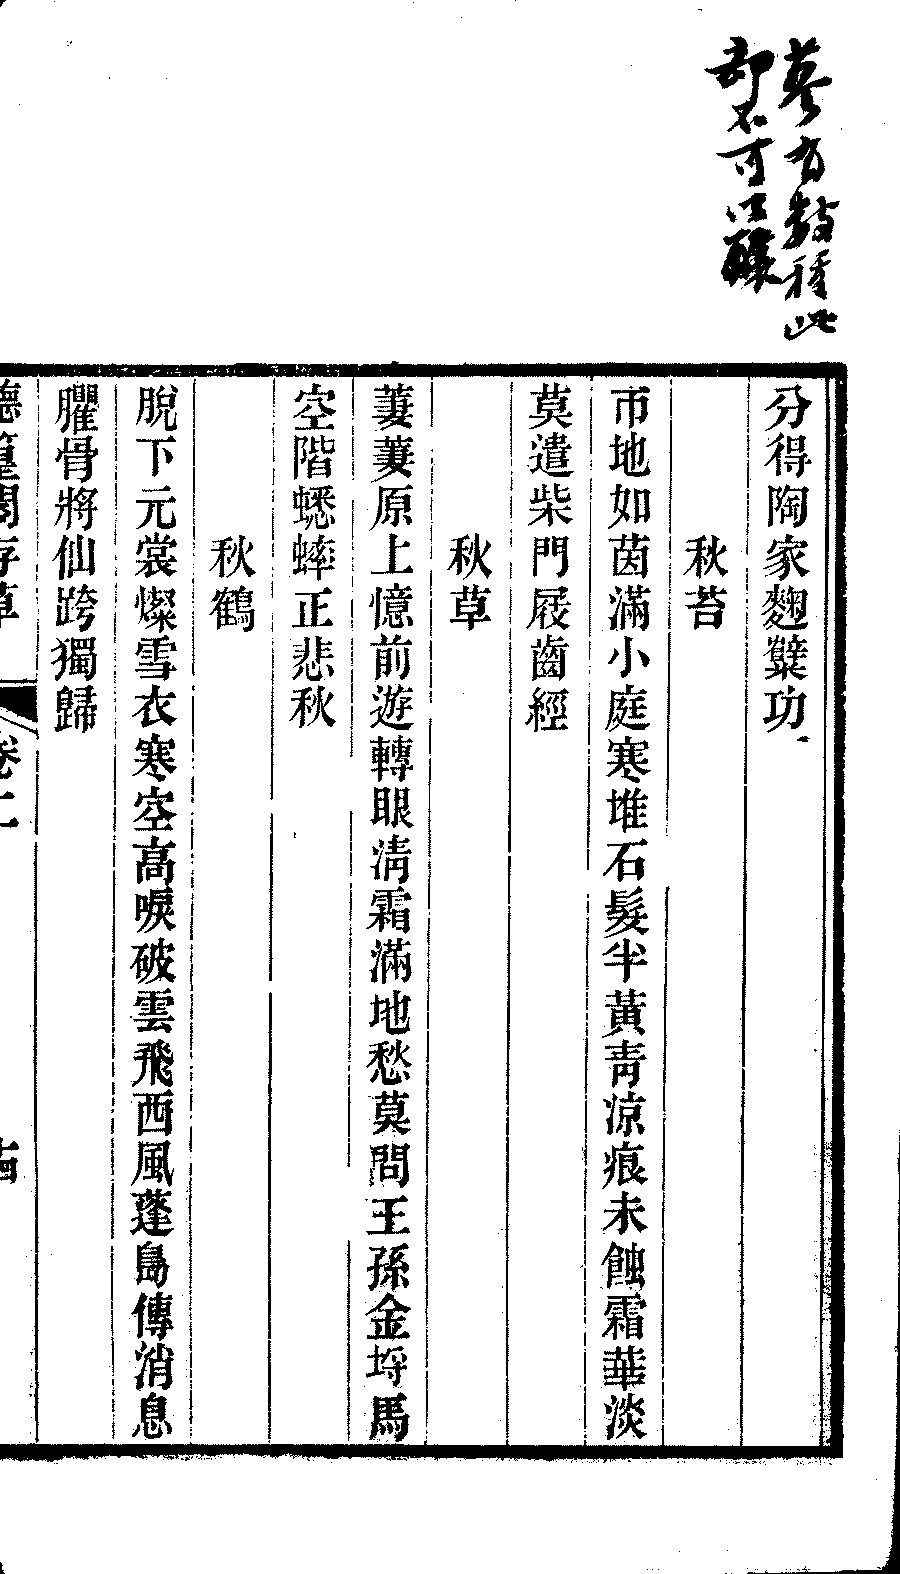 蓼有數種此
却不可以釀
分得陶家麴糱功
秋苔
帀地如茵滿小庭寒堆石髮半黃青涼痕未蝕霜華淡
莫遣柴門屐齒經
秋草
萋萋原上憶前遊轉眼淸霜滿地愁莫問王孫金埒馬
空階蟋蟀正悲秋
秋鶴
脫下元裳燦雪衣寒空高唳破雲飛西風蓬島傳消息
臞骨將仙跨獨歸
德篁閣存草 卷二